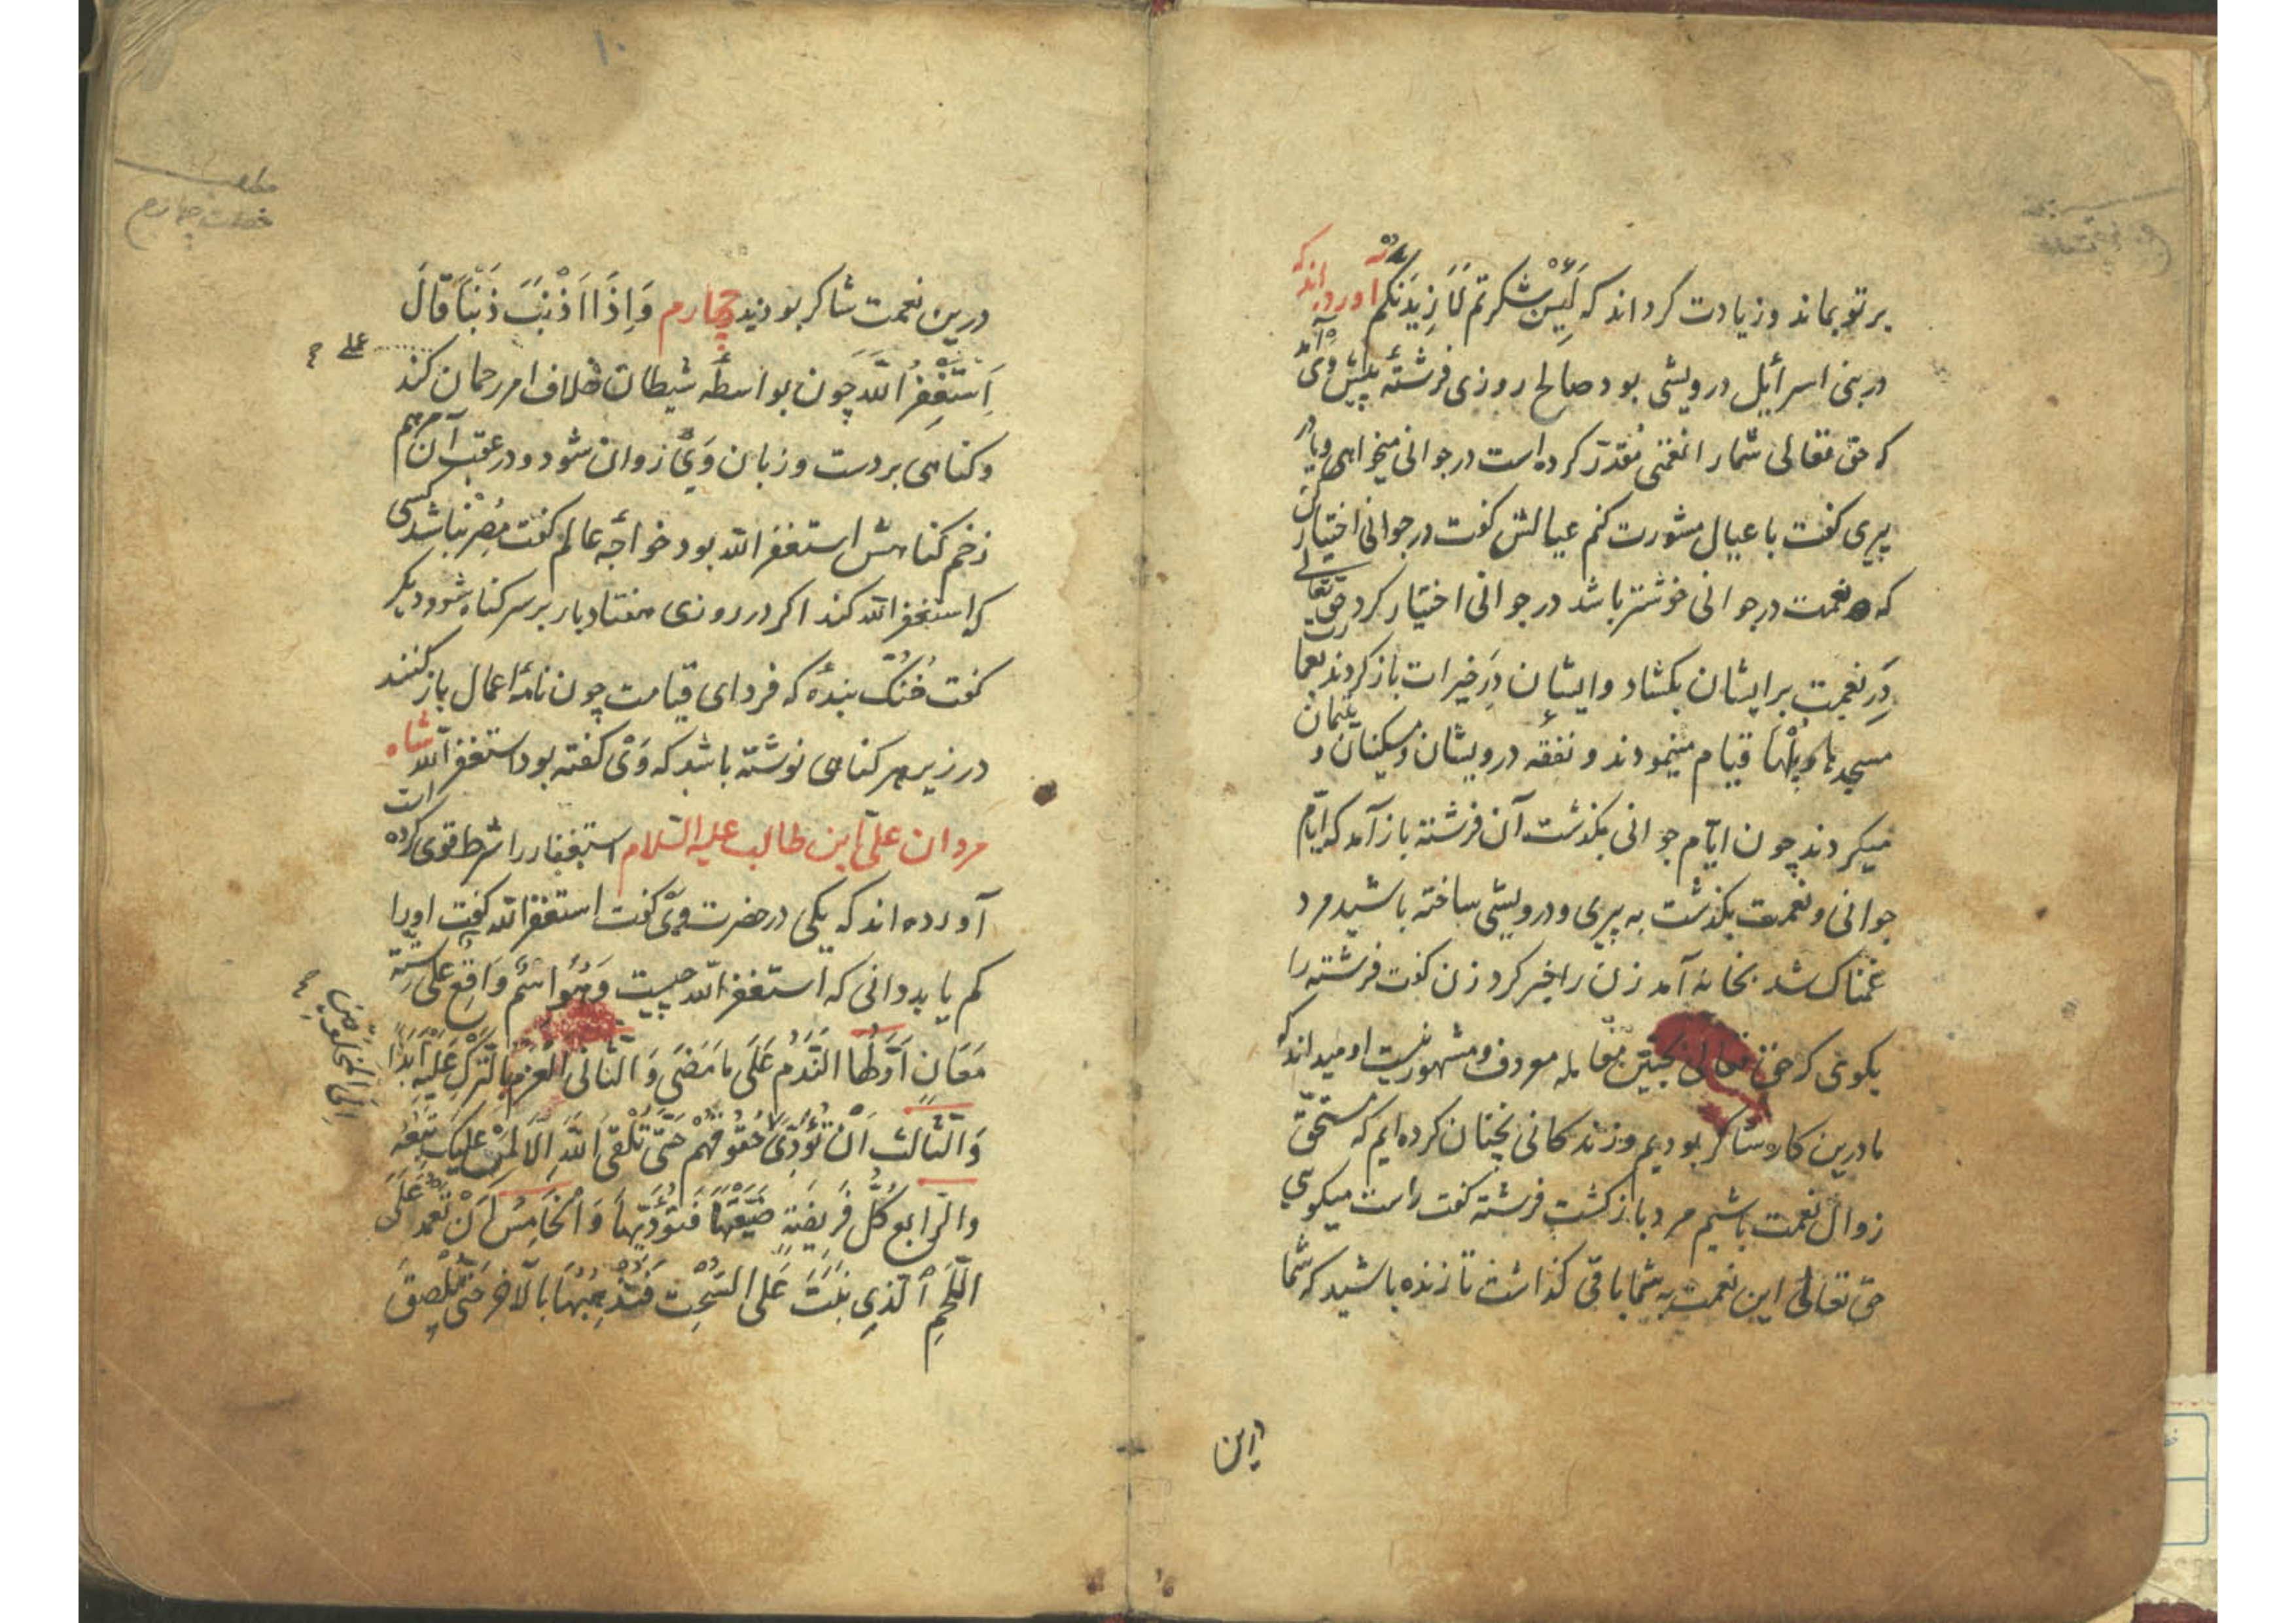 بر تو بماند و زیادت کرداند که لَئِنْ شکرتم لَاَزِیدَنَّکم آورده اند که
در بنی اسرائیل درویشی بود صالح روزی فرشتهٔ پیش وَیْ آمد
که حق تعالی شما را نعمتی مُقدّر کرده است در جوانی میخواهی و یا در
پیری کفت با عیال مشورت کنم عیالش کفت در جوانی اختیار کن
که نعمت در جوانی خوشتر باشد در جوانی اختیار کرد حق تعالی
دَرِ نعمت بر ایشان بکشاد و ایشان دَرِ خیرات باز کردند بعمارت
مسجدها و پُلْها قیام مینمودند و نفقه درویشان و مسکینان و یتیمان
میکردند چون ایّام جوانی بکذشت آن فرشته باز آمد که ایّام
جوانی و نعمت بکذشت به پیری و درویشی ساخته باشید مرد
غمناک شد بخانه آمد زن را خبر کرد زن کفت فرشته را
بکوی که حق تعالی بچنین معامله معروف و مشهور نیست او میداند که
ما درین کار شاکر بودیم و زندکانی نچنان کرده ایم که مستحقّ
زوال نعمت باشیم مرد باز کشت فرشته کفت راست میکویی
حق تعالی این نعمت به شما باقی کذاشت تا زنده باشید که شما
این
۱۰
خصلت چهارم
درین نعمت شاکر بودید چهارم وَاِذَا اَذْنَبَ ذَنْبَاً قَالَ
اَسْتَغْفِرُ اللّه چون بواسطهٔ شیطان خلاف امر رحمان کند
عملی
و کناهی بر دست و زبان وَیْ روان شود و در عقب آن مرهم
زخم کناهش استغفر الله بود خواجهٔ عالم کفت مُصِر نباشد کسی
که استغفر الله کند اکر در روزی هفتاد بار بر سر کناه شود دیکر
کفت خُنُکْ بندهٔ که فردای قیامت چون نامهٔ اعمال باز کنند
در زیر هر کناهی نوشته باشد که وَیْ کفته بود استغفر الله شاه
مردان علیّ ابن طالب علیه السّلام استغفار را شرط قوی کرده است
آورده اند که یکی در حضرت وَیْ کفت استغفر الله کفت او را
کم یابد دانی که استغفر الله چیست وَهُوَ اسْمٌ وَاقِعٌ عَلی سِتّة
مَعَانٍ اَوّلُها النَّدَمُ عَلَی مَا مَضَی وَ الثّانی الْعَزم بالتّرْکِ عَلَیْهِ اَبَدًا
وَالثّالِثُ اَنْ تُؤَدِّیَ حُقُوقَهُمْ حَتّی تَلْقَی اللّهَ اِلَّا لَمَنْ عَلَیکَ تَبِعَه
اِلَی المخلوقین
والرّابع کُلُّ فَرِیضَةٍ ضَیَّعْتَهَا فَتُؤَدّیهَا وَ الْخَامِسُ اَنْ تَعْمَدَ عَلَی
اللّحْمِ الّذِی نَبَتَ عَلَی السُّحْت فَتُذْهِبُهَا بالا حَتّی تُلْصِقَ